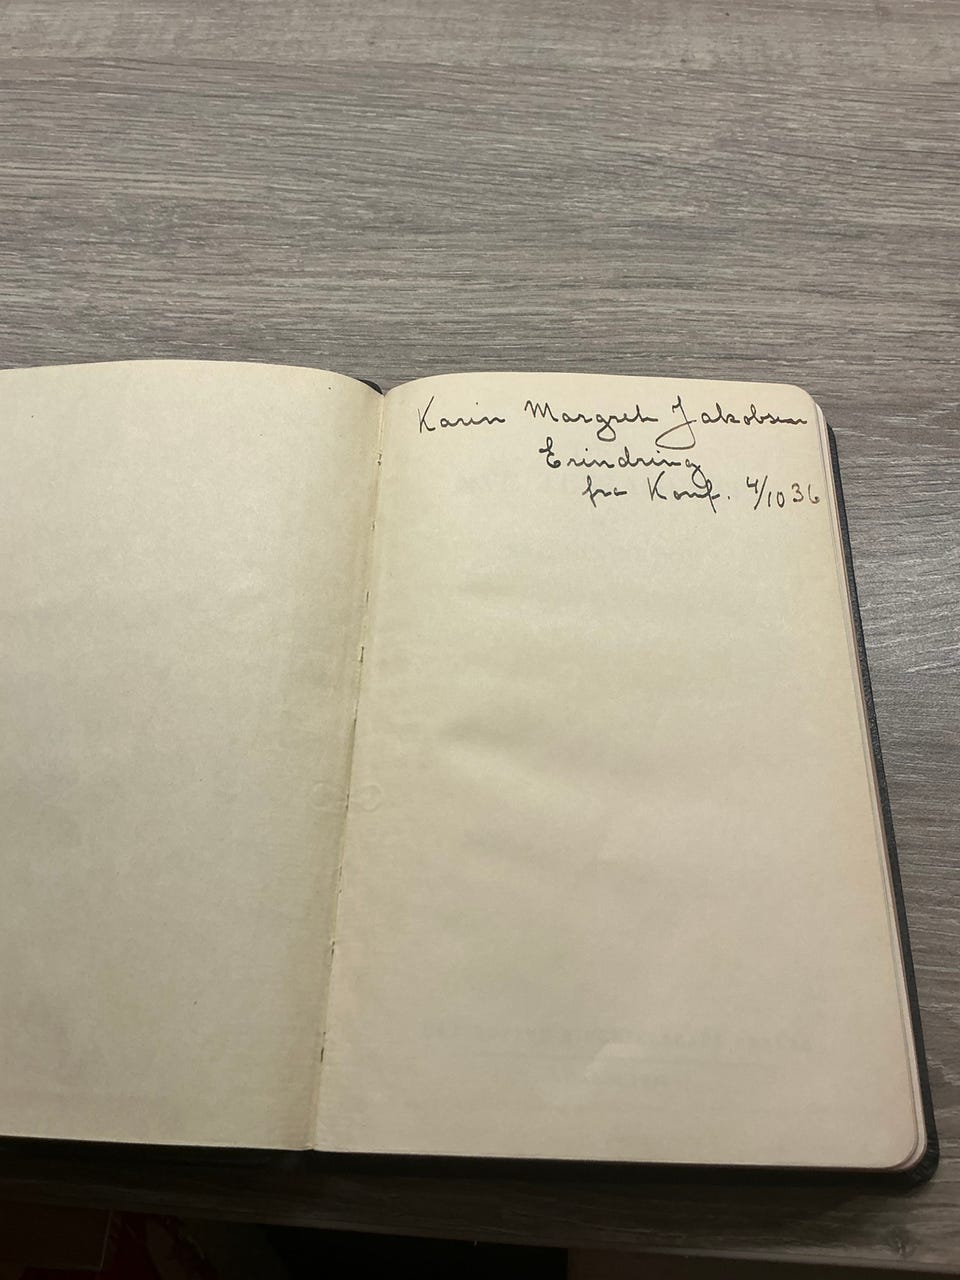 Karin Margreth Jakobsen
Erindring
fra Konf. 4/10 36